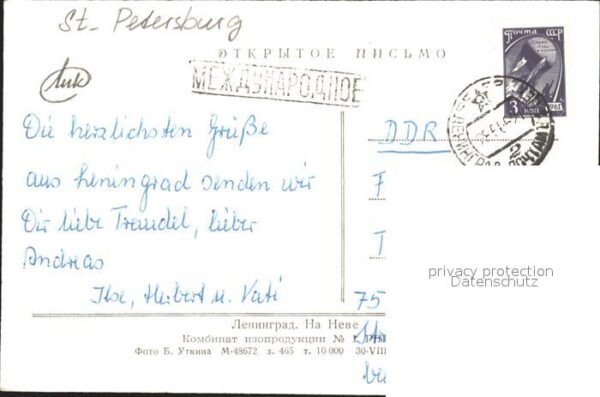 St. Petersburg
ОТКРЫТОЕ ПИСЬМО
ПОЧТА СССР
3 КОП
МЕЖДУНАРОДНОЕ
Die herzlichsten Grüße
aus Leningrad senden wir
Dir liebe Traudel, lieber
Andreas
Ilse, Herbert u. Vati
DDR
F
T
75
privacy protection
Datenschutz
Ленинград. На Неве
Комбинат изопродукции №
Фото Б. Уткина М-48672 з. 465 т. 10 000 30-VIII